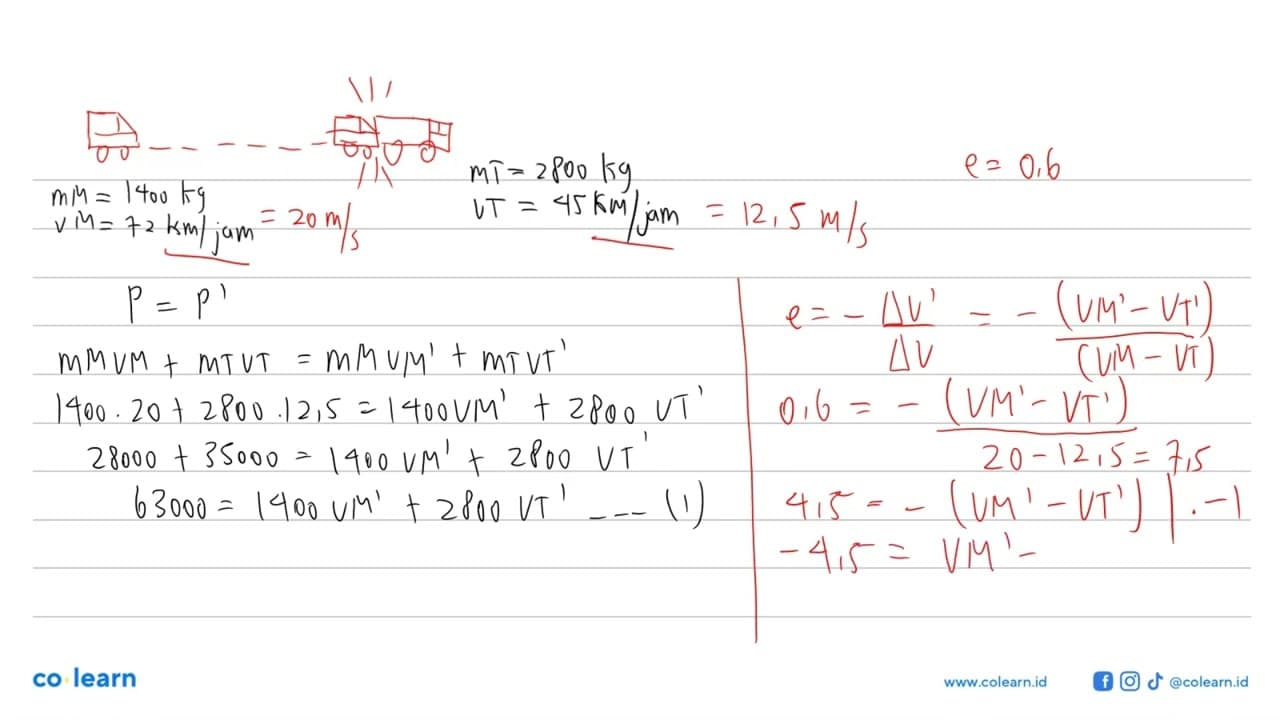 mM = 1400 kg
vM = 72 km/jam = 20 m/s
mT = 2800 kg
VT = 45 km/jam = 12,5 m/s
e = 0,6
P = P'
mM VM + mT VT = mM VM' + mT VT'
1400 . 20 + 2800 . 12,5 = 1400 VM' + 2800 VT'
28000 + 35000 = 1400 VM' + 2800 VT'
63000 = 1400 VM' + 2800 VT' ---- (1)
e = - ΔV' / ΔV = - (VM' - VT') / (VM - VT)
0,6 = - (VM' - VT') / 20 - 12,5 = 7,5
4,5 = - (VM' - VT') | . -1
- 4,5 = VM' -
co learn
www.colearn.id
@colearn.id